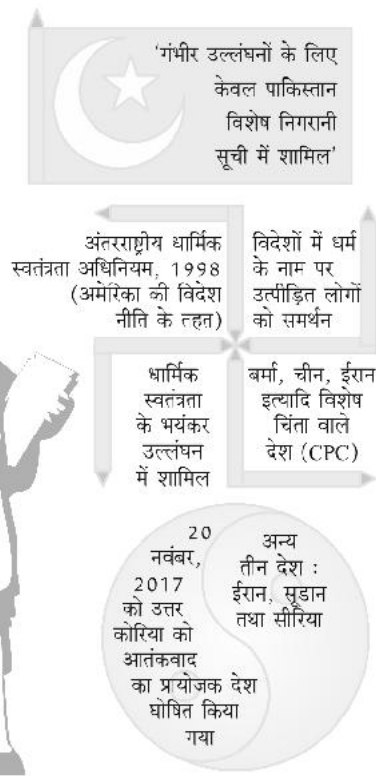 ‘गंभीर उल्लंघनों के लिए
केवल पाकिस्तान
विशेष निगरानी
सूची में शामिल’
अंतरराष्ट्रीय धार्मिक
स्वतंत्रता अधिनियम, 1998
(अमेरिका की विदेश
नीति के तहत)
विदेशों में धर्म
के नाम पर
उत्पीड़ित लोगों
को समर्थन
धार्मिक
स्वतंत्रता
के भयंकर
उल्लंघन
में शामिल
बर्मा, चीन, ईरान
इत्यादि विशेष
चिंता वाले
देश (CPC)
20
नवंबर,
2017
को उत्तर
कोरिया को
आतंकवाद
का प्रायोजक देश
घोषित किया
गया
अन्य
तीन देश :
ईरान, सूडान
तथा सीरिया